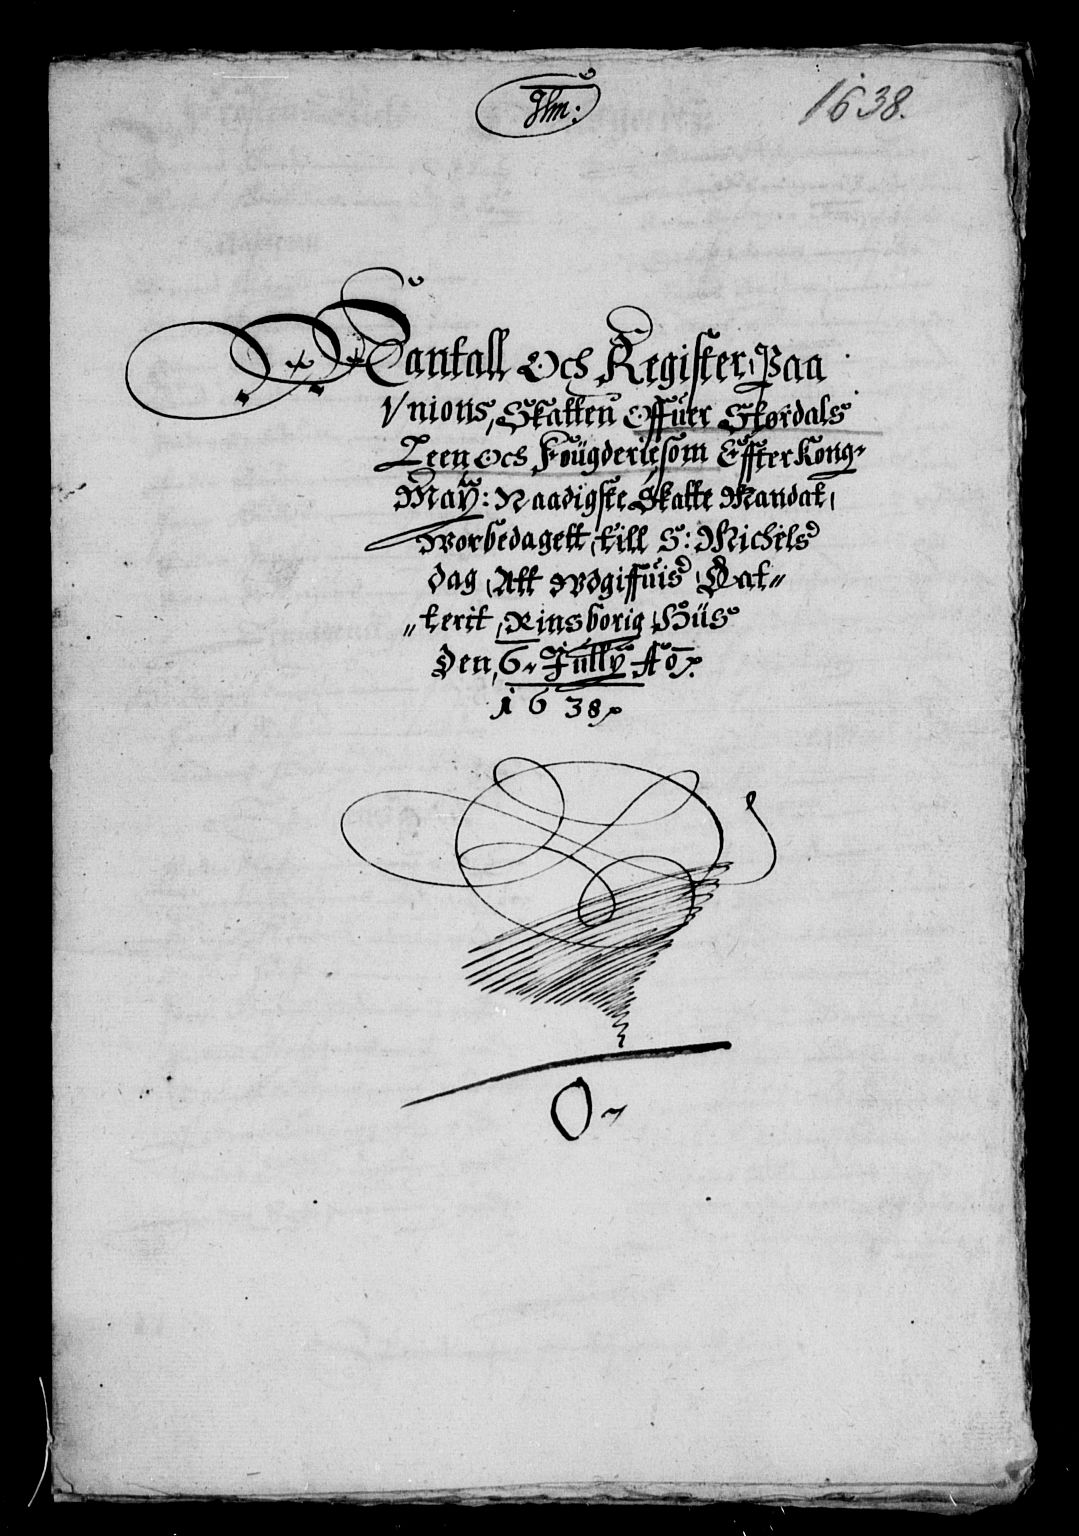 Thm:
1638.
Mantall Och Register, Paa
Vnions, Skatten Offuer Størdals
Leen Och Fougderie, som Effter Kong:
May: Naadigste Skatte Mandat,
Worbedagett, till S: Michels
dag, Att Wdgiffuis, Dat„
„terit, Rinsborig Hüs
Den, 6. Jully Ao.
1638